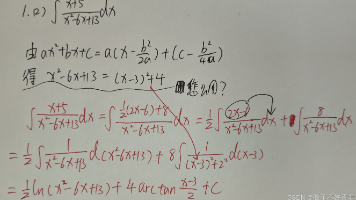 1.(2) ∫ x+5/x²-6x+13 dx
由ax²+bx+c=a(x-b²/2a)+(c-b²/4a)
得 x²-6x+13=(x-3)²+4
∫ x+5/x²-6x+13 dx = ∫ ½(2x-6)+8/x²-6x+13 dx = ½∫ 2x-6/x²-6x+13 dx + ∫ 8/x²-6x+13 dx
= ½∫ 1/x²-6x+13 d(x²-6x+13) + 8∫ 1/(x-3)²+2² d(x-3)
= ½ln(x²-6x+13)+4arctan x-3/2 +C